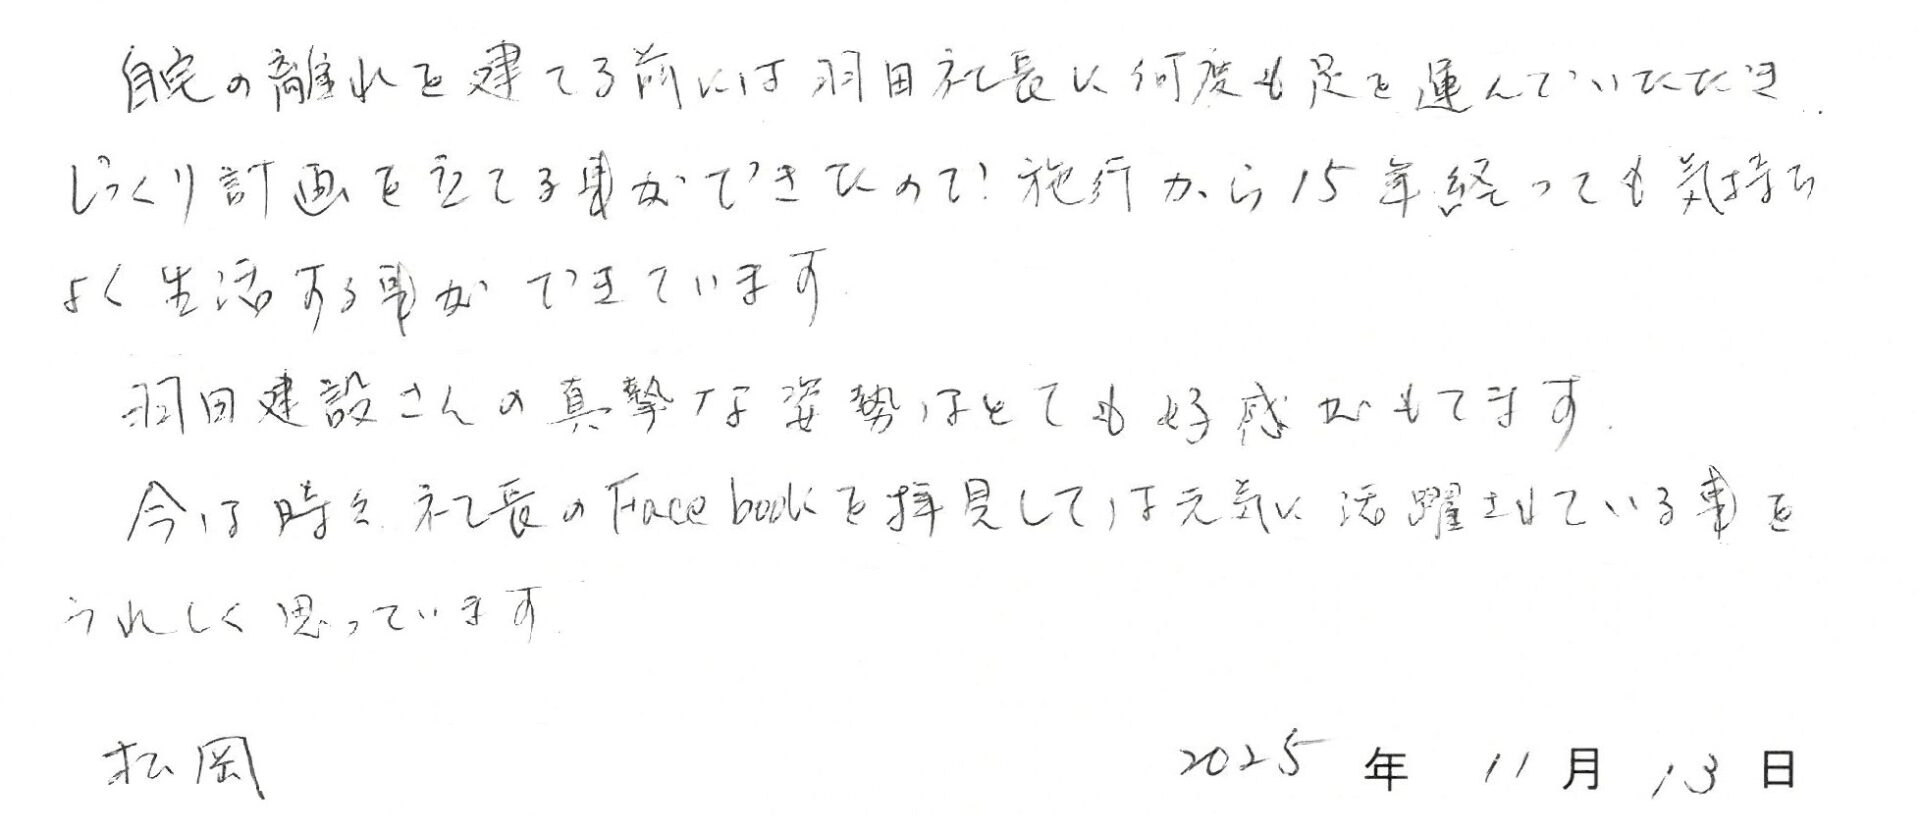 自宅の離れを建てる前には羽田社長に何度も足を運んでいただき
じっくり計画を立てる事ができたので、施行から15年経っても気持ち
よく生活する事ができています
羽田建設さんの真摯な姿勢はとても好感がもてます。
今は時々社長のFacebookを拝見しては元気に活躍されている事を
うれしく思っています
松岡 2025年11月13日